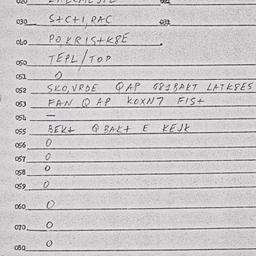 030 S+C+I, RAC 031
040 PO, KRIS+K8E
050 TEPL/TOP
051 O
052 SKO, VRDE QAP G81BAKT LATK8ES
053 FAN QAP KOXN7 FIS+
054 —
055 BEK+ QBAK+ E KEJK
056 O
057 O
058 O
059 O
060 O
070 O
080 O